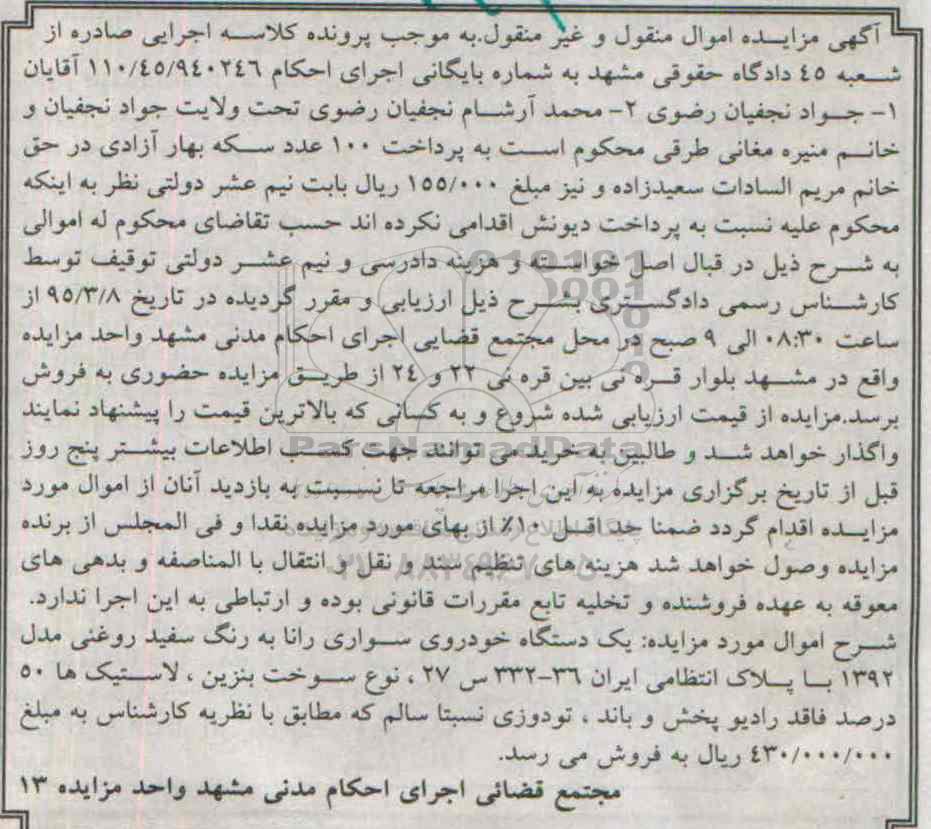 آگهی مزایده اموال منقول و غیر منقول.به موجب پرونده کلاسه اجرایی صادره از
شعبه ٤٥ دادگاه حقوقی مشهد به شماره بایگانی اجرای احکام ١١٠/٤٥/٩٤٠٢٤٦ آقایان
١- جواد نجفیان رضوی ٢- محمد آرشام نجفیان رضوی تحت ولایت جواد نجفیان و
خانم منیره مغانی طرقی محکوم است به پرداخت ١٠٠ عدد سکه بهار آزادی در حق
خانم مریم السادات سعیدزاده و نیز مبلغ ١٥٥/٠٠٠ ریال بابت نیم عشر دولتی نظر به اینکه
محکوم علیه نسبت به پرداخت دیونش اقدامی نکرده اند حسب تقاضای محکوم له اموالی
به شرح ذیل در قبال اصل خواسته و هزینه دادرسی و نیم عشر دولتی توقیف توسط
کارشناس رسمی دادگستری بشرح ذیل ارزیابی و مقرر گردیده در تاریخ ٩٥/٣/٨ از
ساعت ٠٨:٣٠ الی ٩ صبح در محل مجتمع قضایی اجرای احکام مدنی مشهد واحد مزایده
واقع در مشهد بلوار قره نی بین قره نی ٢٢ و ٢٤ از طریق مزایده حضوری به فروش
برسد.مزایده از قیمت ارزیابی شده شروع و به کسانی که بالاترین قیمت را پیشنهاد نمایند
واگذار خواهد شد و طالبین به خرید می توانند جهت کسب اطلاعات بیشتر پنج روز
قبل از تاریخ برگزاری مزایده به این اجرا مراجعه تا نسبت به بازدید آنان از اموال مورد
مزایده اقدام گردد ضمنا حداقل ١٠٪ از بهای مورد مزایده نقدا و فی المجلس از برنده
مزایده وصول خواهد شد هزینه های تنظیم سند و نقل و انتقال با المناصفه و بدهی های
معوقه به عهده فروشنده و تخلیه تابع مقررات قانونی بوده و ارتباطی به این اجرا ندارد.
شرح اموال مورد مزایده: یک دستگاه خودروی سواری رانا به رنگ سفید روغنی مدل
١٣٩٢ با پلاک انتظامی ایران ٣٦-٣٣٢ س ٢٧ ، نوع سوخت بنزین ، لاستیک ها ٥٠
درصد فاقد رادیو پخش و باند ، تودوزی نسبتا سالم که مطابق با نظریه کارشناس به مبلغ
٤٣٠/٠٠٠/٠٠٠ ریال به فروش می رسد.
مجتمع قضائی اجرای احکام مدنی مشهد واحد مزایده ١٣
ParsNamadData